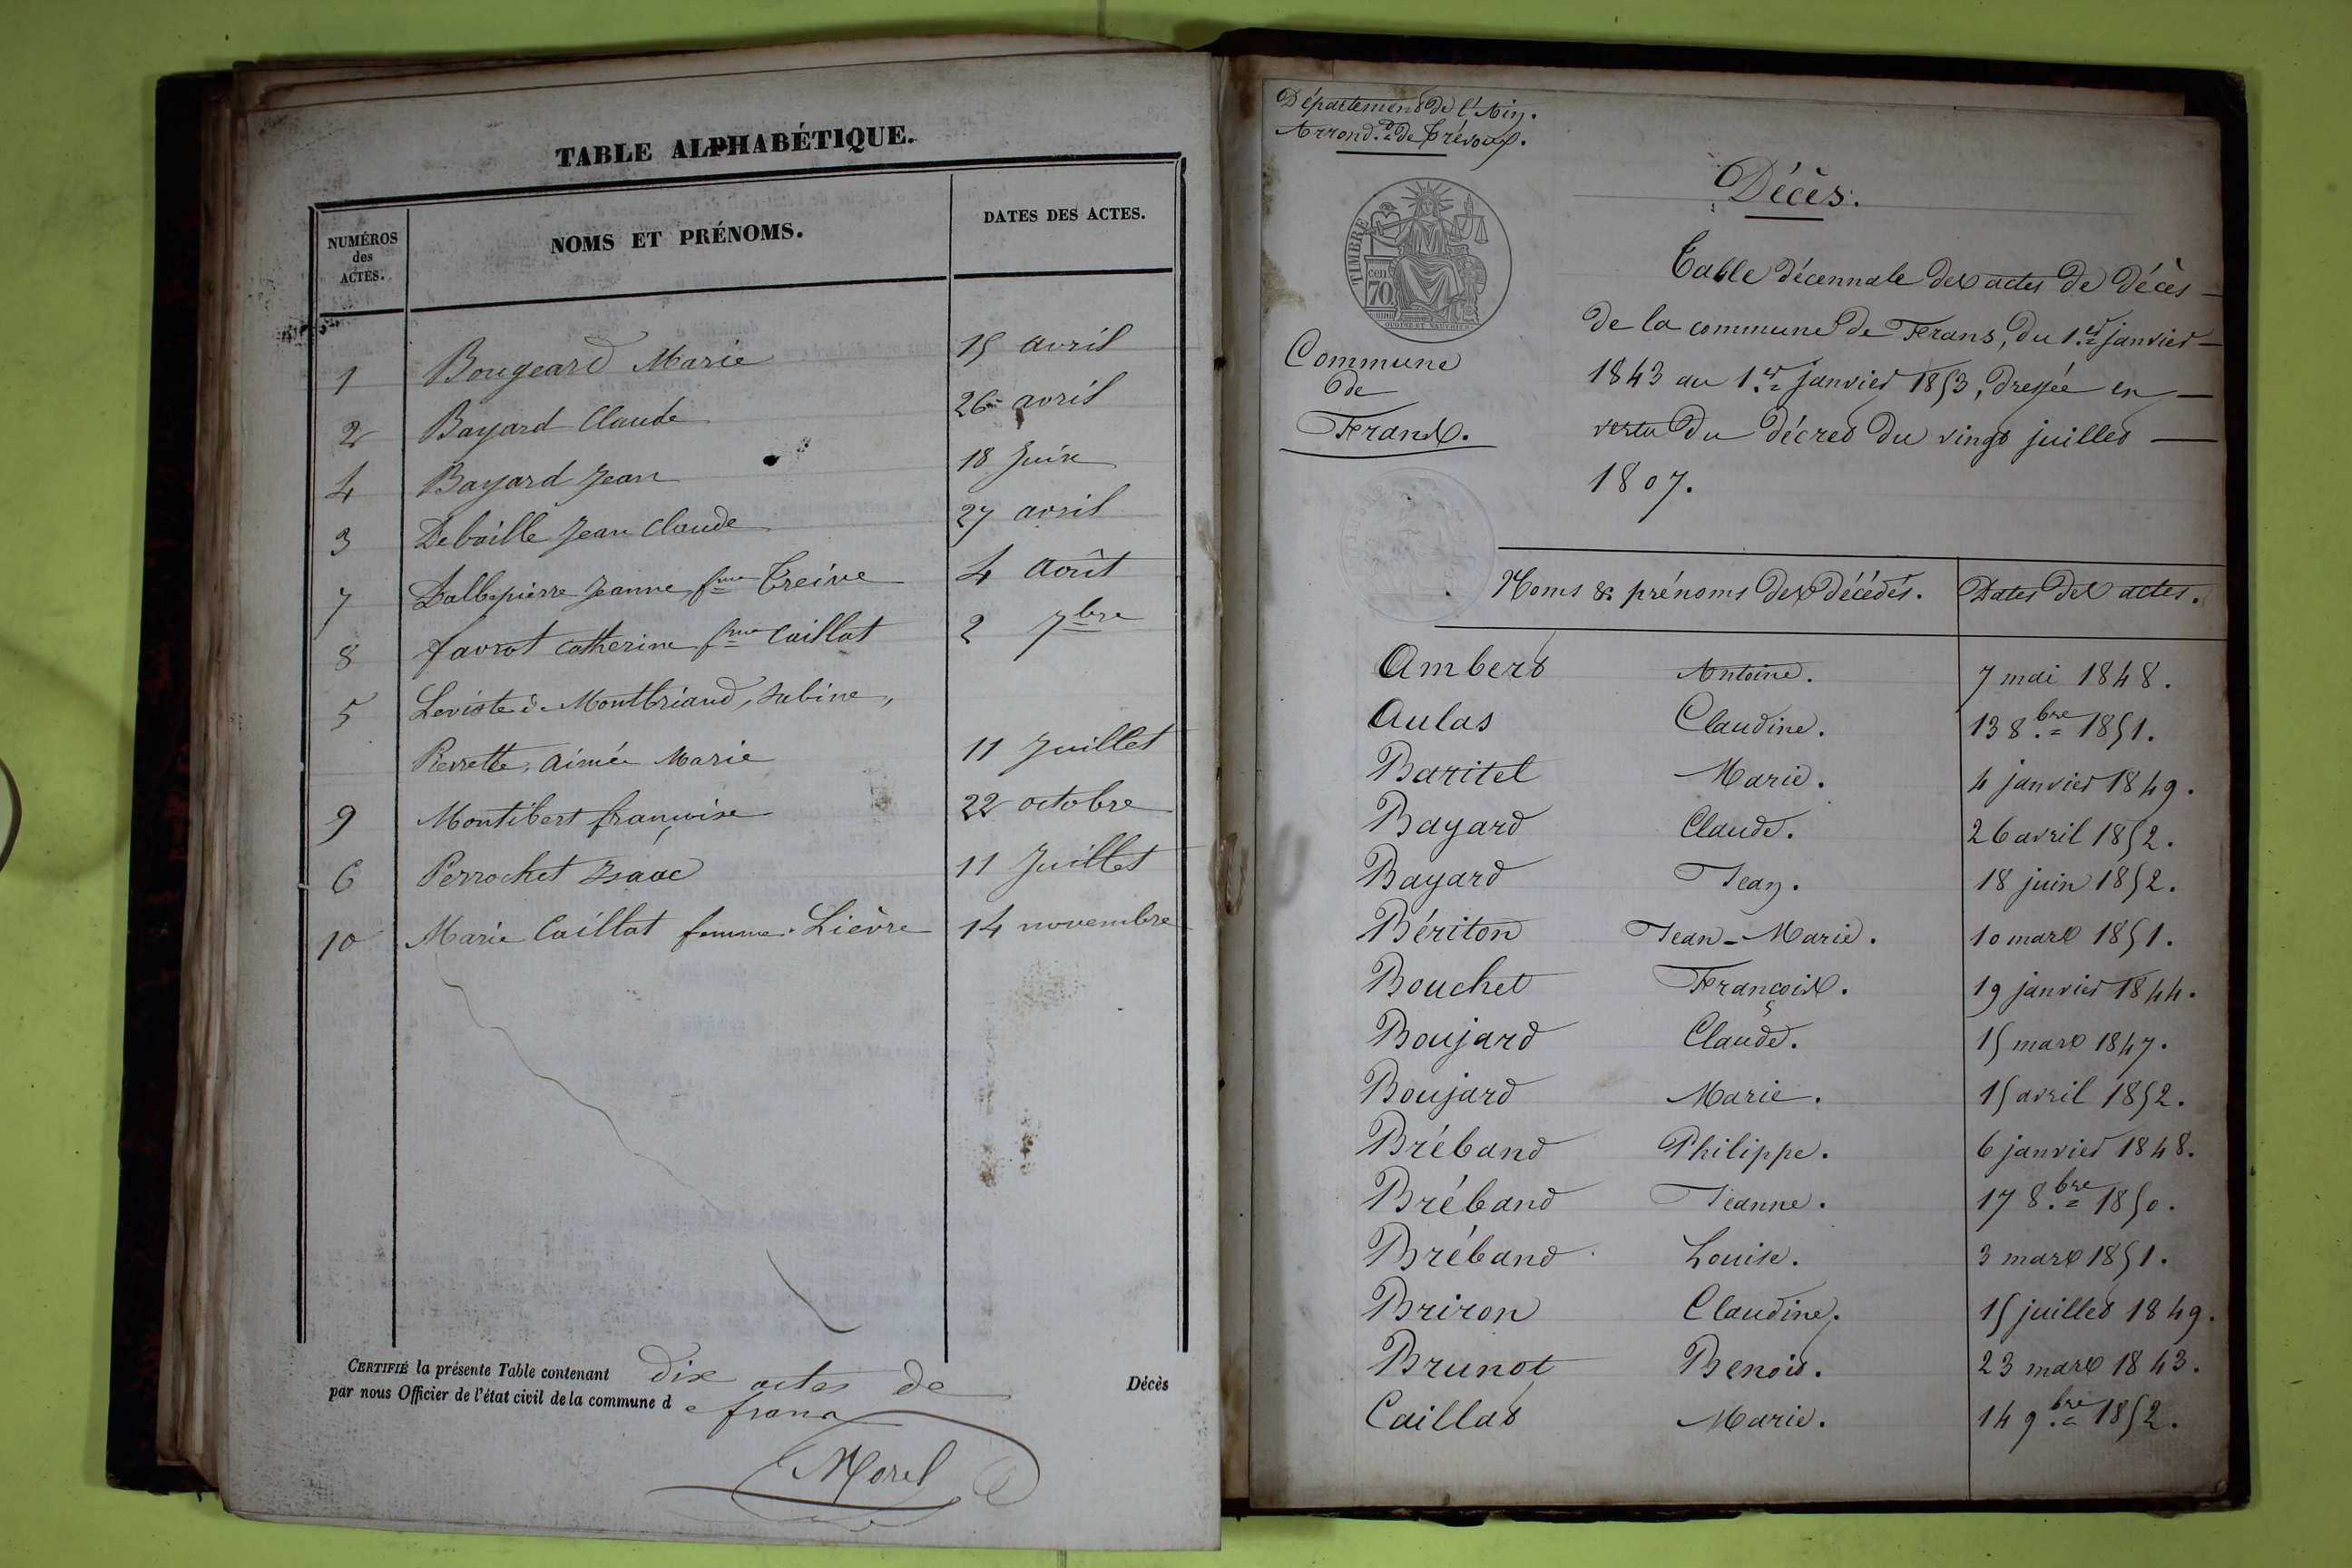 TABLE ALPHABÉTIQUE.
NUMÉROS des ACTES. NOMS ET PRÉNOMS. DATES DES ACTES.
1 Bougeard Marie 15 avril
2 Bayard Claude 26 avril
4 Bayard Jean 18 Juin
3 Debaille Jean Claude 27 avril
7 Dallepierre Jeanne fme Treive 4 Août
8 favrot Catherine fme Caillat 2 7bre
5 Leviste de Montbriand, Sabine,
Pierrette, Aimée Marie 11 Juillet
9 Montibert françoise 22 octobre
6 Perrochet Isaac 11 Juillet
10 Marie Caillat femme Lièvre 14 novembre
CERTIFIÉ la présente Table contenant dix actes de Décès
par nous Officier de l'état civil de la commune de frans
Morel
Département de l'Ain.
Arrond.t de Trévoux.
TIMBRE
70 cen
Commune
de
Frans.
Décès.
Table décennale des actes de Décès
de la commune de Frans, du 1.er janvier
1843 au 1.er janvier 1853, dressée en
vertu du décret du vingt juillet
1807.
Noms & prénoms des décédés. Dates des actes.
Ambert Antoine. 7 mai 1848.
Aulas Claudine. 13 8.bre 1851.
Baritel Marie. 4 janvier 1849.
Bayard Claude. 26 avril 1852.
Bayard Jean. 18 juin 1852.
Bériton Jean-Marie. 10 mars 1851.
Bouchet François. 19 janvier 1844.
Boujard Claude. 15 mars 1847.
Boujard Marie. 15 avril 1852.
Bréband Philippe. 6 janvier 1848.
Bréband Jeanne. 17 8.bre 1850.
Bréband Louise. 3 mars 1851.
Briron Claudine. 15 juillet 1849.
Brunot Benoit. 23 mars 1843.
Caillat Marie. 14 9.bre 1852.